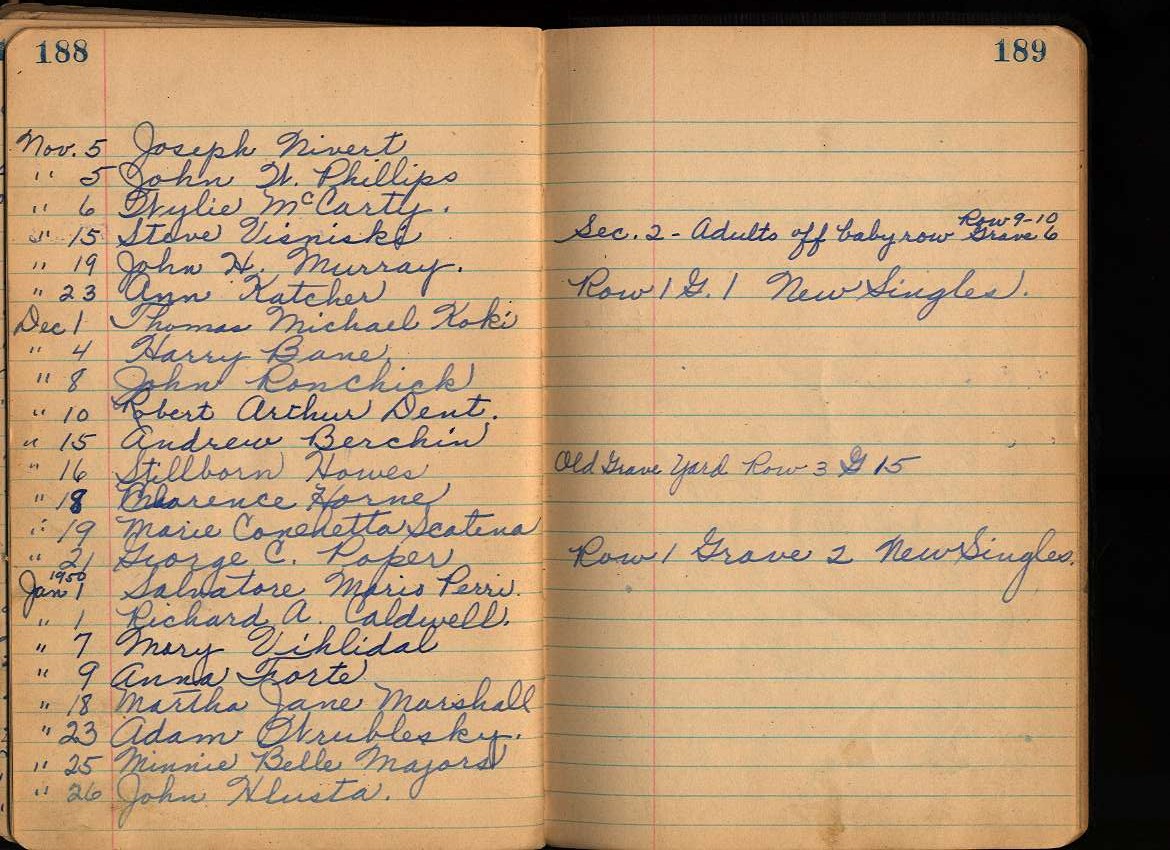 188
189
Nov. 5 Joseph Nivert
" 5 John W. Phillips
" 6 Wylie McCarty.
" 15 Steve Visniski Sec. 2 - Adults off babyrow Row 9-10 Grave 6
" 19 John H. Murray.
" 23 Ann Katcher Row 1 G. 1 New Singles.
Dec 1 Thomas Michael Koki
" 4 Harry Bane
" 8 John Ronchick
" 10 Robert Arthur Dent.
" 15 Andrew Berchin
" 16 Stillborn Howes Old Grave Yard Row 3 G 15
" 18 Clarence Horne
" 19 Marie Conchetta Scatena
" 21 George C. Roper Row 1 Grave 2 New Singles.
Jan 1950 1 Salvatore Mario Perri.
" 1 Richard A. Caldwell.
" 7 Mary Vihlidal
" 9 Anna Forte
" 18 Martha Jane Marshall
" 23 Adam Wrublesky.
" 25 Minnie Belle Majors
" 26 John Hlusta.